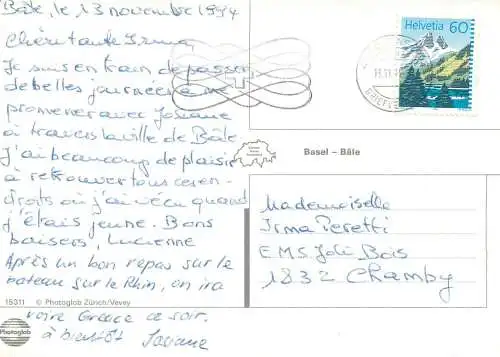 Bâle, le 13 novembre 1994
Chère tante Irma,
Je suis en train de passer
de belles journées à me
promener avec Josiane
à travers la ville de Bâle.
J'ai beaucoup de plaisir
à retrouver tous ces en-
droits où j'ai vécu quand
j'étais jeune. Bons
baisers, Lucienne
Après un bon repas sur le
bateau sur le Rhin, on ira
voir Grease ce soir.
à bientôt Josiane
15311 © Photoglob Zürich/Vevey
Photoglob
Helvetia 60
Basel – Bâle
Mademoiselle
Irma Peretti
EMS Joli Bois
1832 Chamby